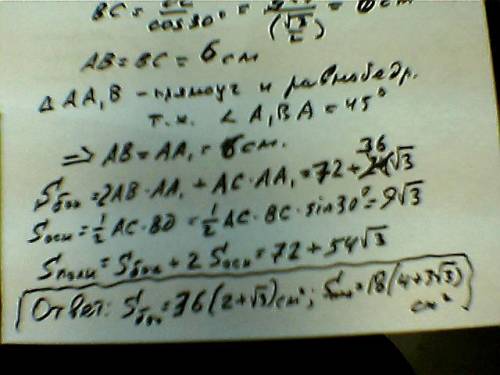 BC = EC/cos30° = .../(√3/2) = 6 см
AB = BC = 6 см
Δ AA₁B - прямоуг и равнобедр.
т.к. ∠ A₁BA = 45°
⇒ AB = AA₁ = 6 см.
Sбок = 2AB·AA₁ + AC·AA₁ = 72 + 36√3
Sосн = 1/2 AC·BD = 1/2 AC·BC·sin30° = 9√3
Sполн = Sбок + 2 Sосн = 72 + 54√3
Ответ: Sбок = 36(2+√3) см²; Sпол = 18(4+3√3) см²